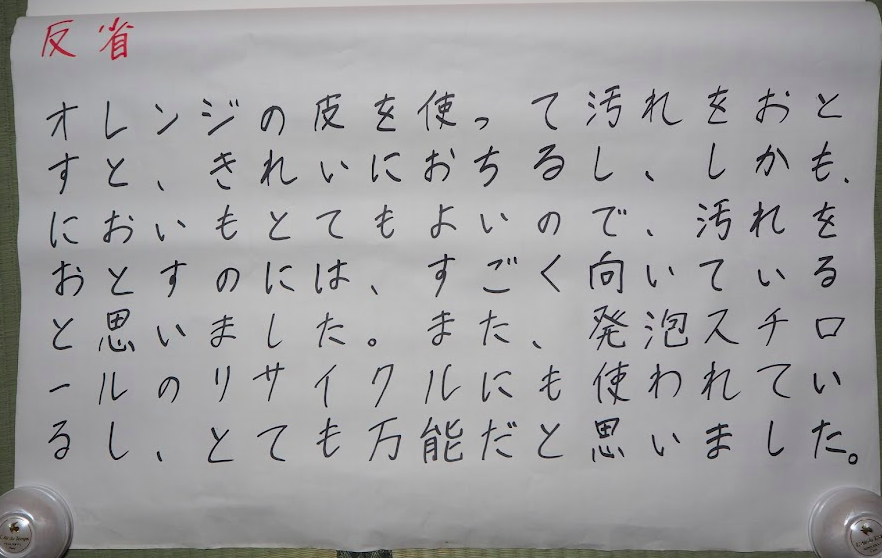 反省
オレンジの皮を使って汚れをおと
すと、きれいにおちるし、しかも、
においもとてもよいので、汚れを
おとすのには、すごく向いている
と思いました。また、発泡スチロ
ールのリサイクルにも使われてい
るし、とても万能だと思いました。